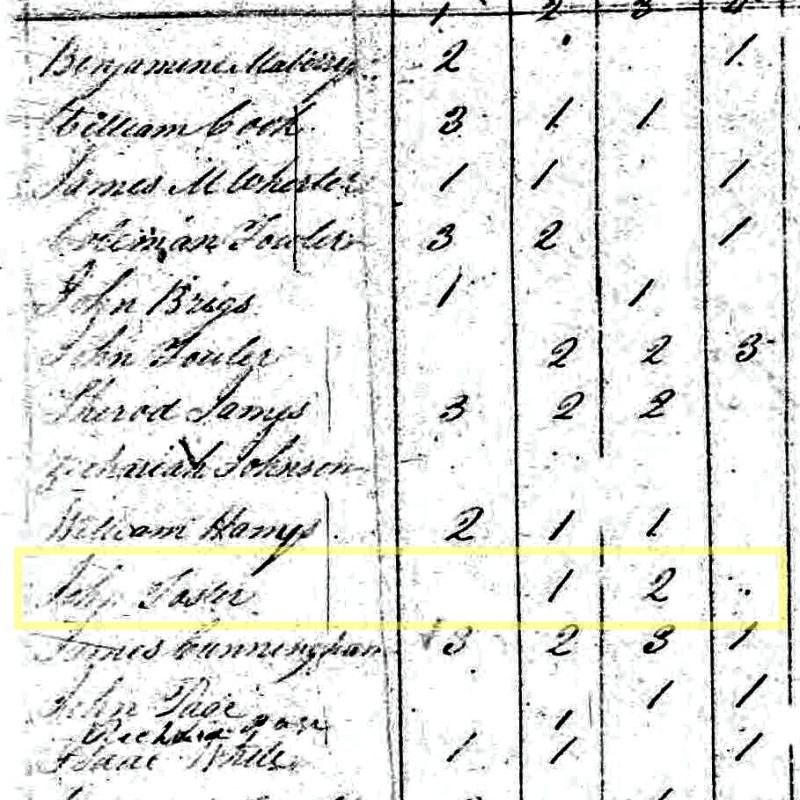 1 2 3 4
Benjamine Mabery 2 1
William Cook 3 1 1
James McWherter 1 1 1
Coleman Fowler 3 2 1
John Brigs 1 1
John Fowler 2 2 3
Sherod Jamys 3 2 2
Zechariah Johnson
William Hamys 2 1 1
John Foster 1 2
James Cunningham 3 2 3 1
John Page 1 1
Richard 1
Isaac White 1 1 1